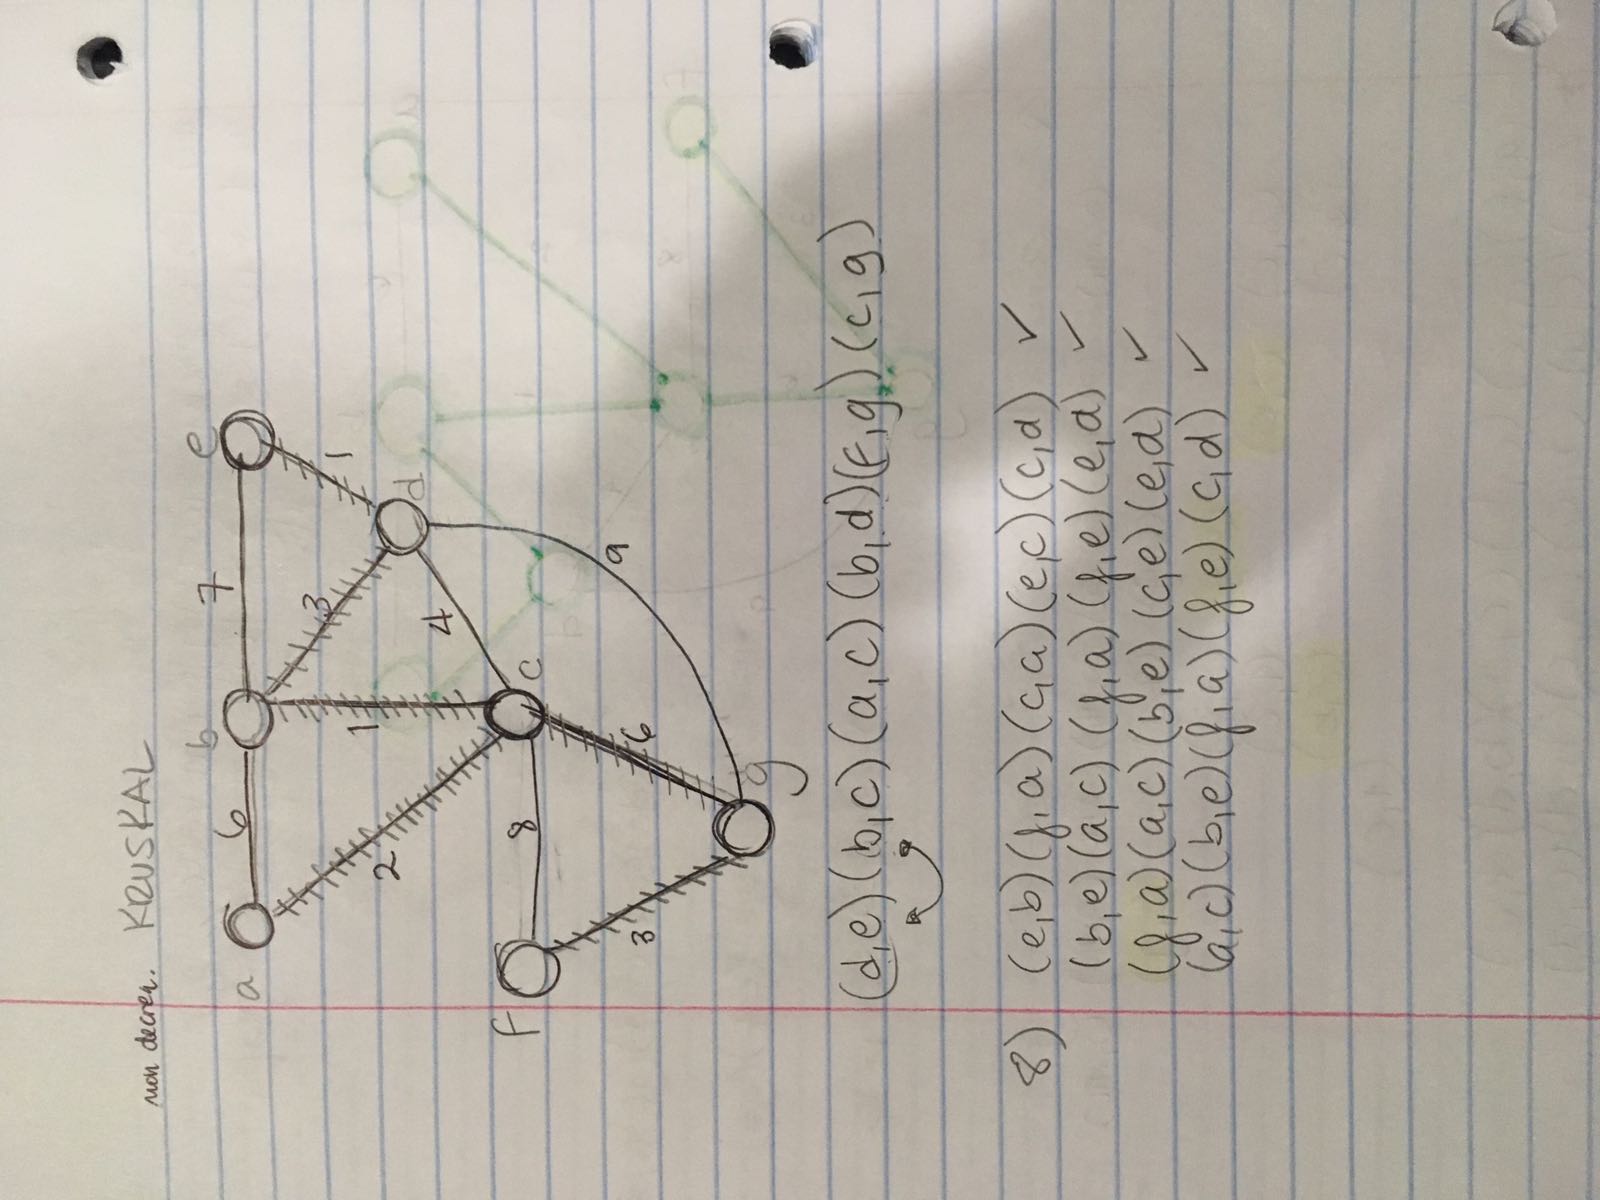 non decren. KRUSKAL
a 6 b 7 e
2 1 3 1
d
4
c
F 8 6 9
3
g
(d,e)(b,c)(a,c)(b,d)(F,g)(c,g)
8) (e,b)(f,a)(c,a)(e,c)(c,d) ✓
(b,e)(a,c)(f,a)(f,e)(e,d) ✓
(f,a)(a,c)(b,e)(c,e)(e,d) ✓
(a,c)(b,e)(f,a)(f,e)(c,d) ✓